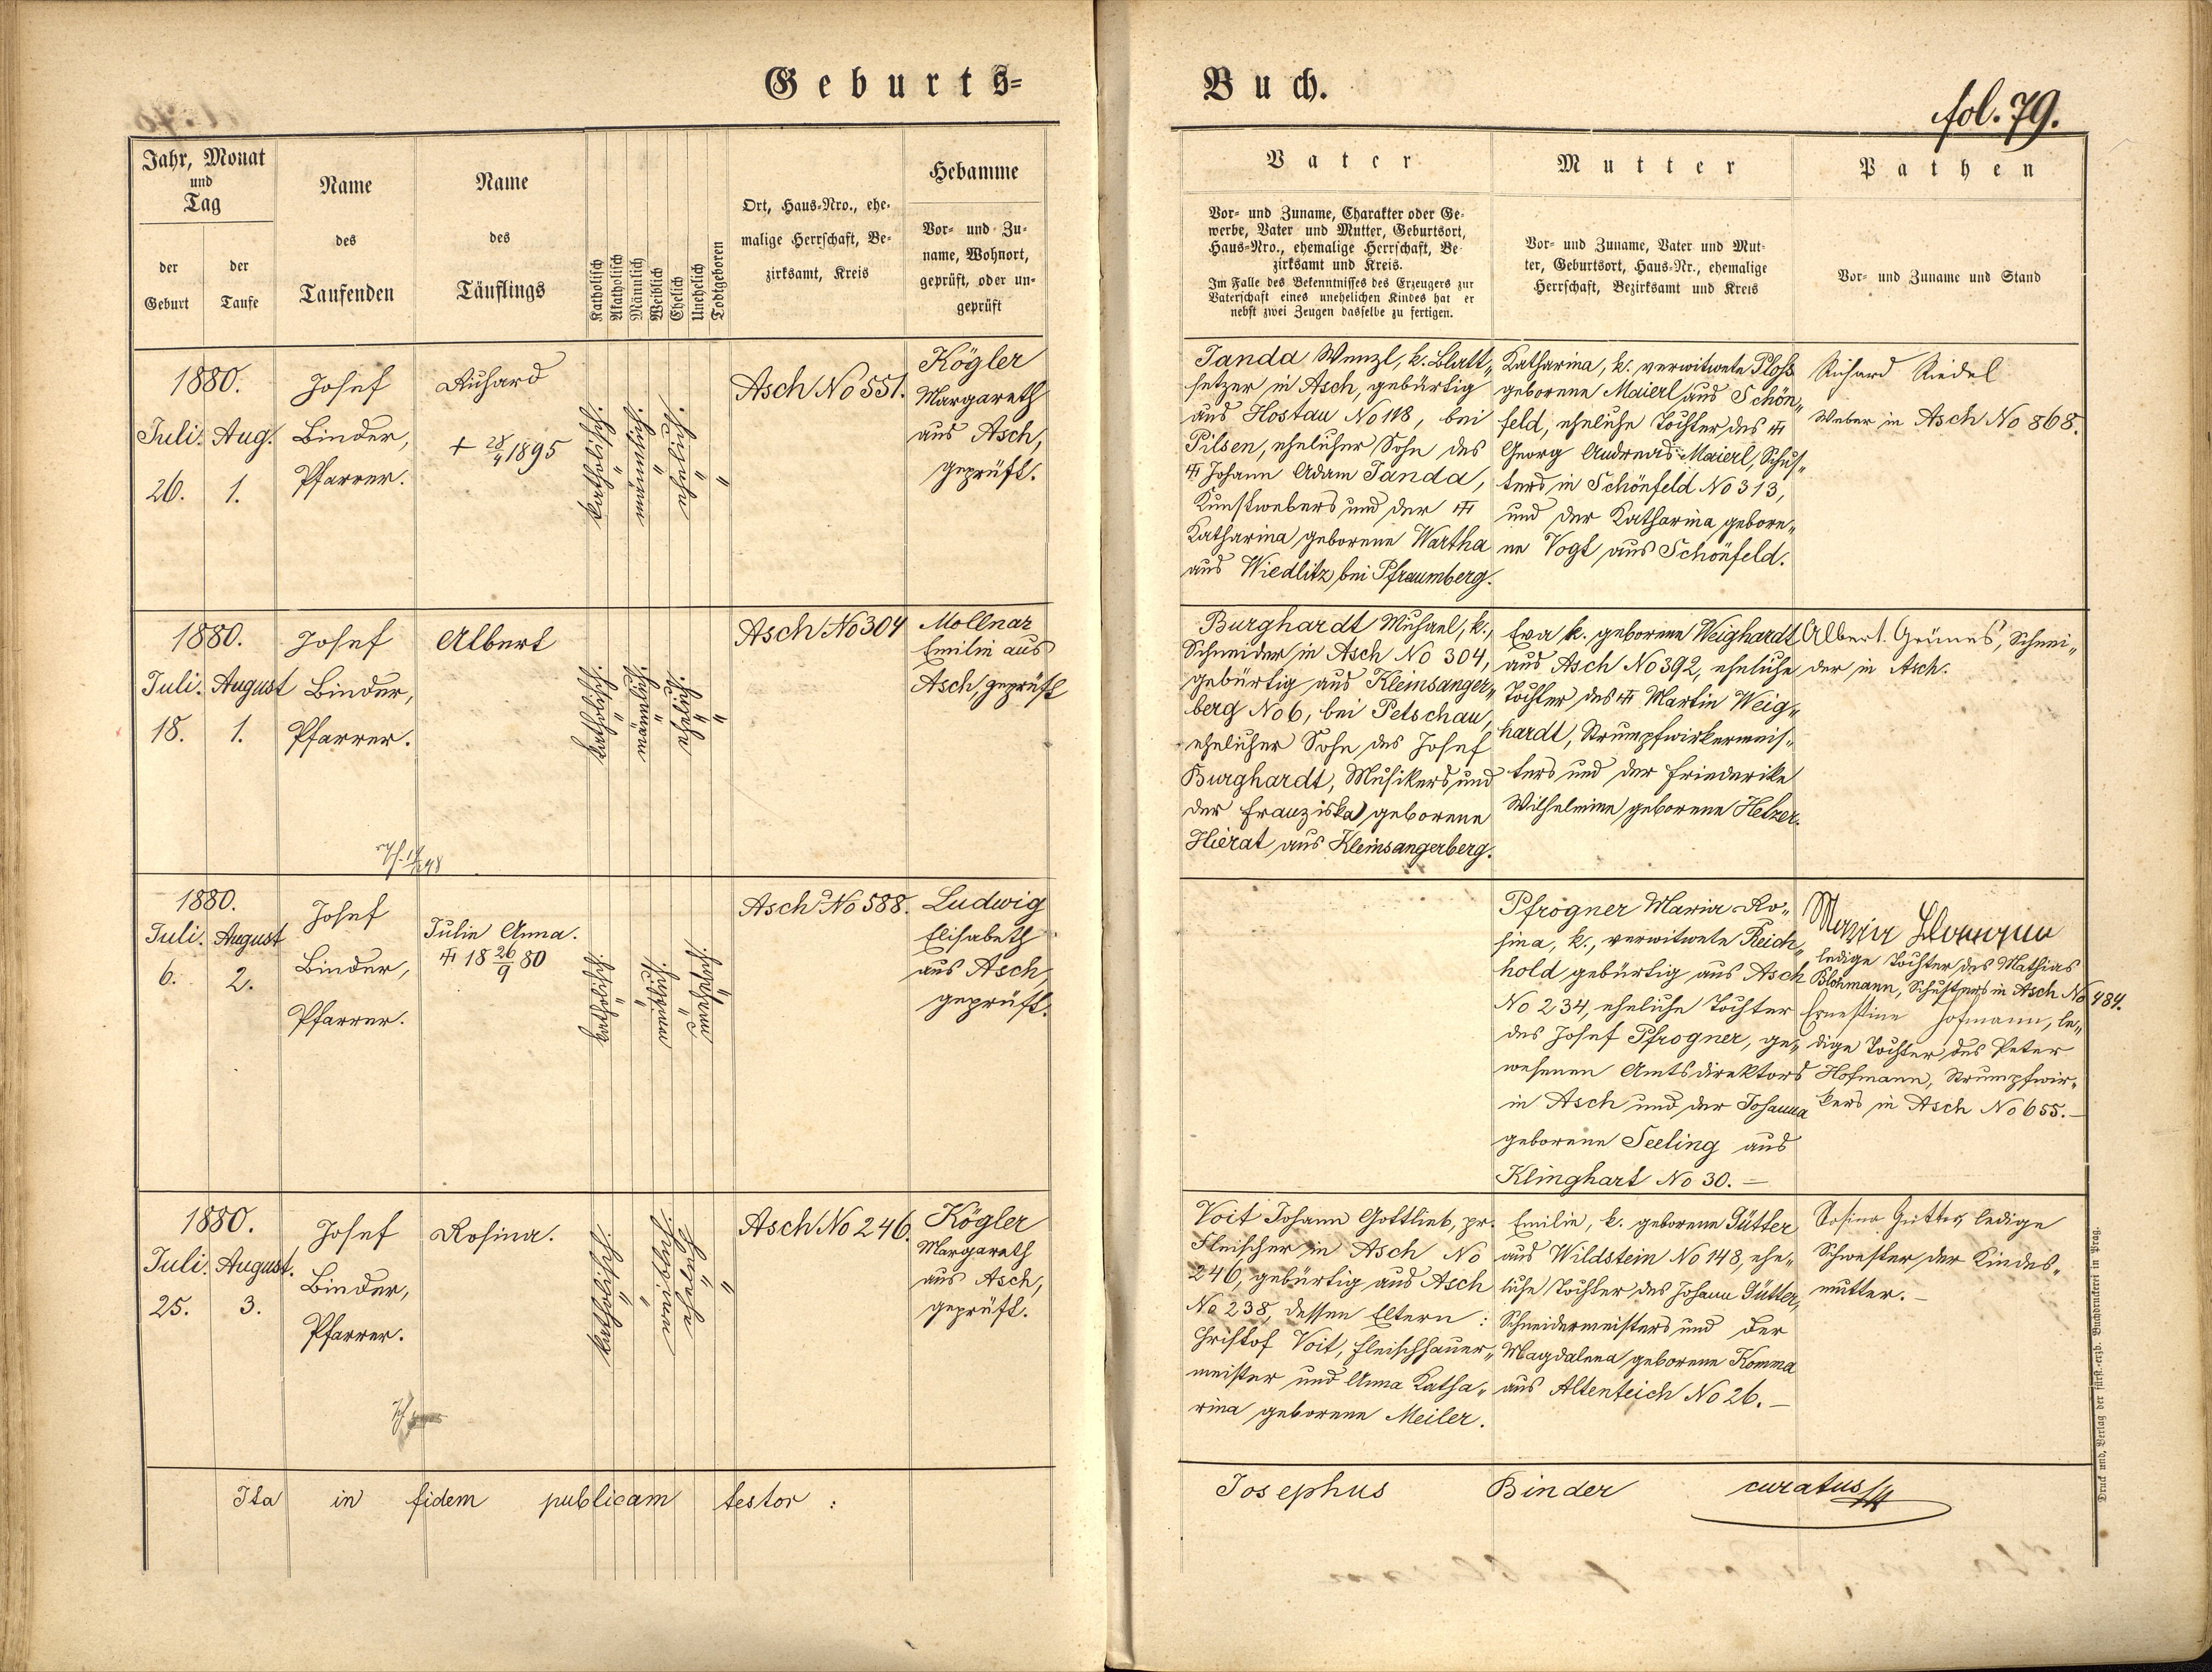 Geburts-
Buch.
fol. 79.
Jahr, Monat
und
Tag
der
Geburt
der
Taufe
Name
des
Taufenden
Name
des
Täuflings
Katholisch
Akatholisch
Männlich
Weiblich
Ehelich
Unehelich
Todtgeboren
Ort, Haus-Nro., ehe-
malige Herrschaft, Be-
zirksamt, Kreis
Hebamme
Vor- und Zu-
name, Wohnort,
geprüft, oder un-
geprüft
Vater
Vor- und Zuname, Charakter oder Ge-
werbe, Vater und Mutter, Geburtsort,
Haus-Nro., ehemalige Herrschaft, Be-
zirksamt und Kreis.
Im Falle des Bekenntnisses des Erzeugers zur
Vaterschaft eines unehelichen Kindes hat er
nebst zwei Zeugen dasselbe zu fertigen.
Mutter
Vor- und Zuname, Vater und Mut-
ter, Geburtsort, Haus-Nr., ehemalige
Herrschaft, Bezirksamt und Kreis
Pathen
Vor- und Zuname und Stand
1880.
Juli. Aug.
26. 1.
Josef
Binder,
Pfarrer.
Richard
+ 28/4 1895
katholisch.
"
männlich.
"
ehelich.
"
"
Asch No 551.
Kögler
Margareth
aus Asch,
geprüft.
Janda Wenzl, k. Blatt„
setzer in Asch, gebürtig
aus Hostau No 118, bei
Pilsen, ehelicher Sohn des
Johann Adam Janda,
Kunstwebers und der
Katharina geborene Wartha
aus Wiedlitz bei Pfraumberg.
Katharina, k. verwitwete Ploß
geborene Maierl aus Schön„
feld, eheliche Tochter des
Georg Andreas Maierl, Schus„
ters in Schönfeld No 313,
und der Katharina gebore„
ne Vogt aus Schönfeld.
Richard Riedel
Weber in Asch No 868.
1880.
Juli. August
18. 1.
Josef
Binder,
Pfarrer.
Albert
katholisch.
"
männlich.
"
ehelich.
"
"
Asch No 304
Mollnar
Emilie aus
Asch, geprüft
Burghardt Michael, k.,
Schneider in Asch No 304,
gebürtig aus Kleinsanger„
berg No 6, bei Petschau,
ehelicher Sohn des Josef
Burghardt, Musikers und
der Franziska geborene
Hierat aus Kleinsangerberg.
Eva k. geborene Weighardt
aus Asch No 392, eheliche
Tochter des Martin Weig„
hardt, Strumpfwirkermeis„
ters und der Friederike
Wilhelmine geborene Helzer.
Albert Grünes, Schnei„
der in Asch.
1880.
Juli. August
6. 2.
Josef
Binder,
Pfarrer.
Julie Anna.
18 26/9 80
katholisch.
"
weiblich.
"
unehelich.
Asch No 588.
Ludwig
Elisabeth
aus Asch,
geprüft.
Pfrogner Maria Ro„
sina, k., verwitwete Reich„
hold gebürtig aus Asch
No 234, eheliche Tochter
des Josef Pfrogner, ge„
wesenen Amtsdirektors
in Asch und der Johanna
geborene Seeling aus
Klinghart No 30. —
Maria
ledige Tochter des Mathias
Blohmann, Schusters in Asch No 484.
Ernestine Hofmann, le„
dige Tochter des Peter
Hofmann, Strumpfwir„
kers in Asch No 655. —
1880.
Juli. August.
25. 3.
Josef
Binder,
Pfarrer.
Rosina.
katholisch.
"
weiblich.
ehelich.
"
Asch No 246.
Kögler
Margareth
aus Asch,
geprüft.
Voit Johann Gottlieb, pr.
Fleischer in Asch No
246, gebürtig aus Asch
No 238, dessen Eltern:
Christof Voit, Fleischhauer„
meister und Anna Katha„
rina geborene Meiler.
Emilie, k. geborene Gütter
aus Wildstein No 148, ehe„
liche Tochter des Johann Gütter,
Schneidermeisters und der
Magdalena geborene Komma
aus Altenteich No 26. —
Rosina Gütter, ledige
Schwester der Kindes„
mutter. —
Ita in fidem publicam testor:
Josephus Binder curatus
Druck und Verlag der fürst.-erzb. Buchdruckerei in Prag.